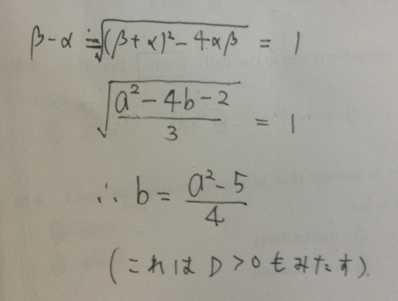 β-α ≒ √((β+α)²-4αβ) = 1
√((a²-4b-2)/3) = 1
∴ b = (a²-5)/4
(これは D>0 もみたす).